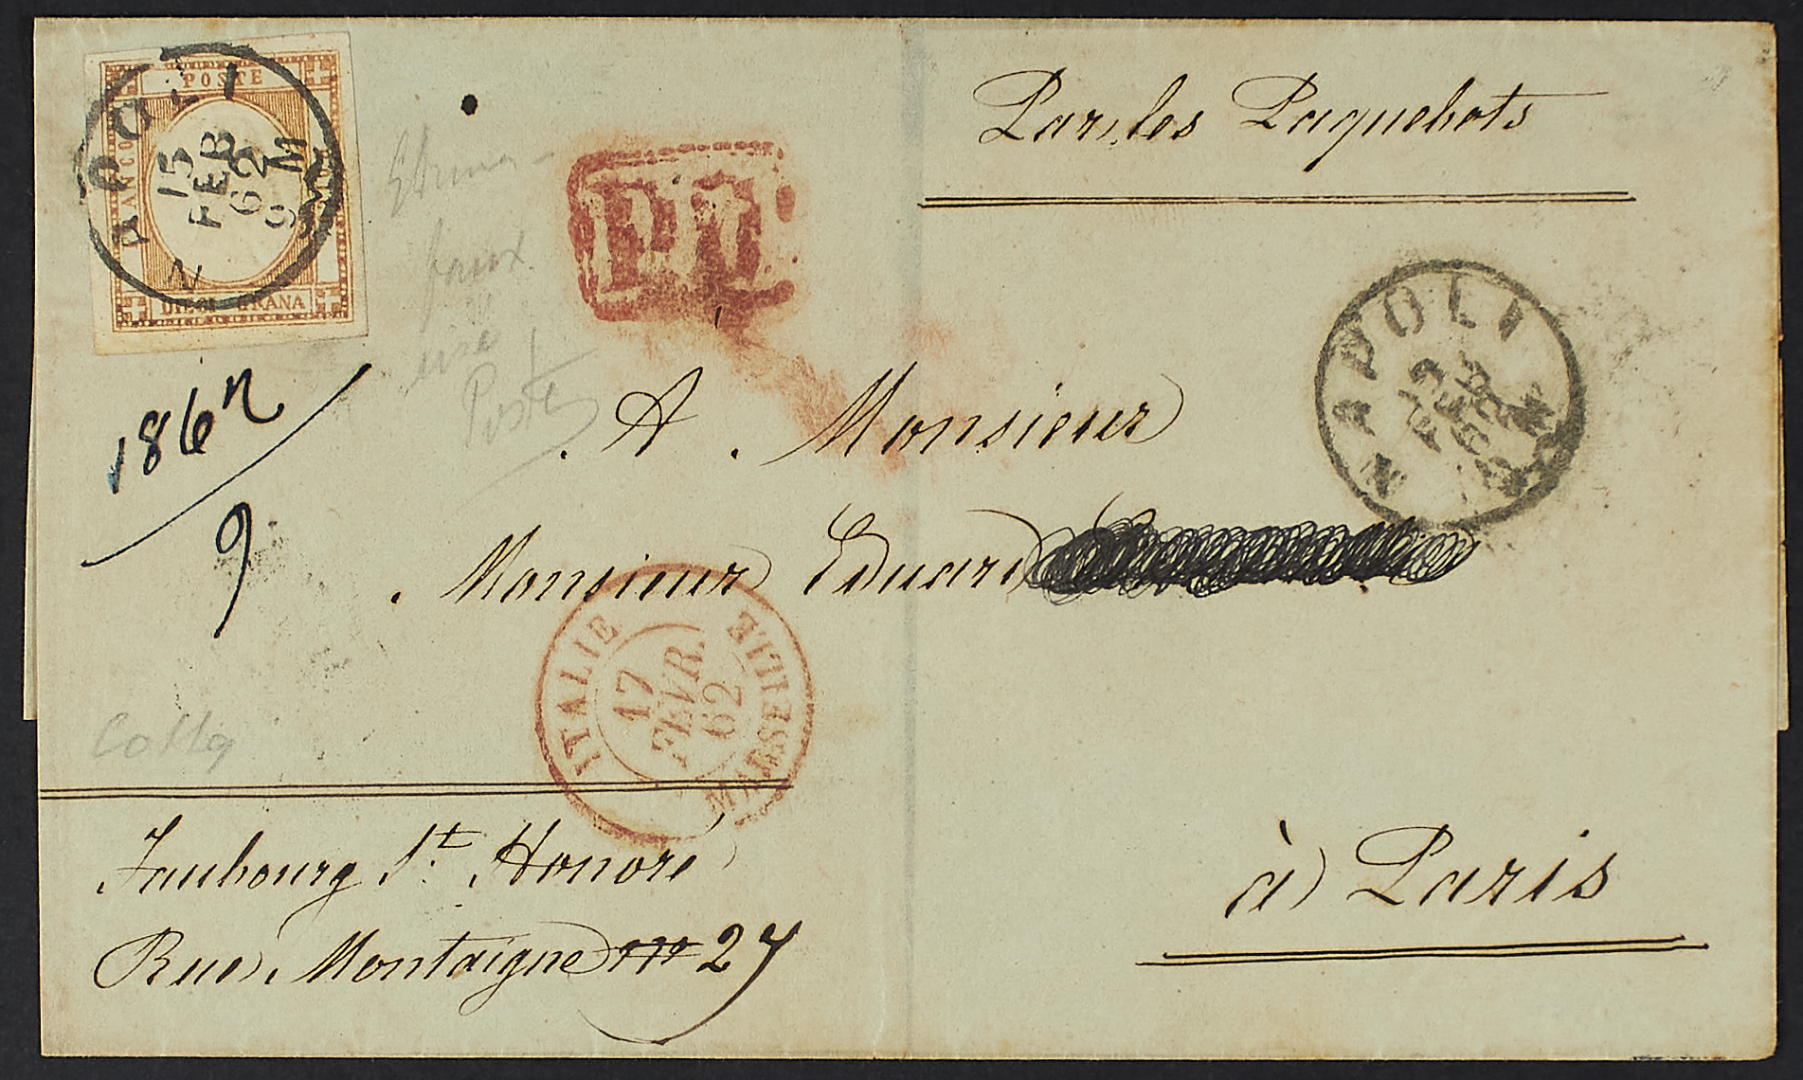 POSTE
FRANCO
DIECI GRANA
NAPOLI
15
FEB
62
9 M
Par les Paquebots
PD
NAPOLI
15
FEB
62
9 M
faux
Poste
1862
9
A Monsieur
Monsieur Eduard
ITALIE
17
FEVR.
62
MARSEILLE
Faubourg St. Honoré
Rue Montaigne no 27
à Paris